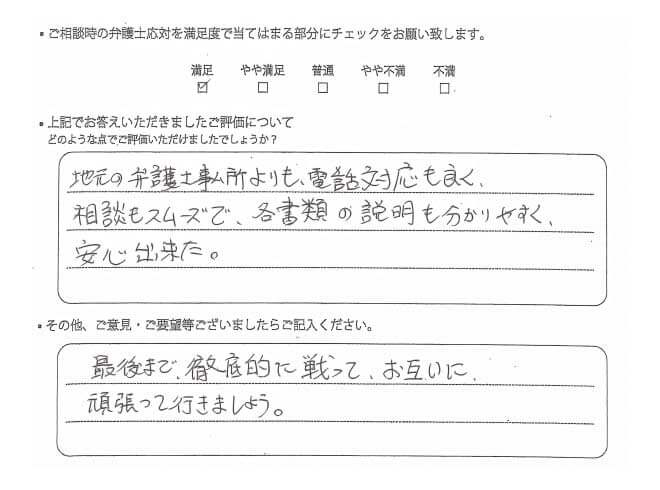 ▪ご相談時の弁護士応対を満足度で当てはまる部分にチェックをお願い致します。
満足 やや満足 普通 やや不満 不満
☑ □ □ □ □
▪上記でお答えいただきましたご評価について
どのような点でご評価いただけましたでしょうか？
地元の弁護士事ム所よりも、電話対応も良く、
相談もスムーズで、各書類の説明も分かりやすく、
安心出来た。
▪その他、ご意見・ご要望等ございましたらご記入ください。
最後まで、徹底的に戦って、お互いに、
頑張って行きましょう。